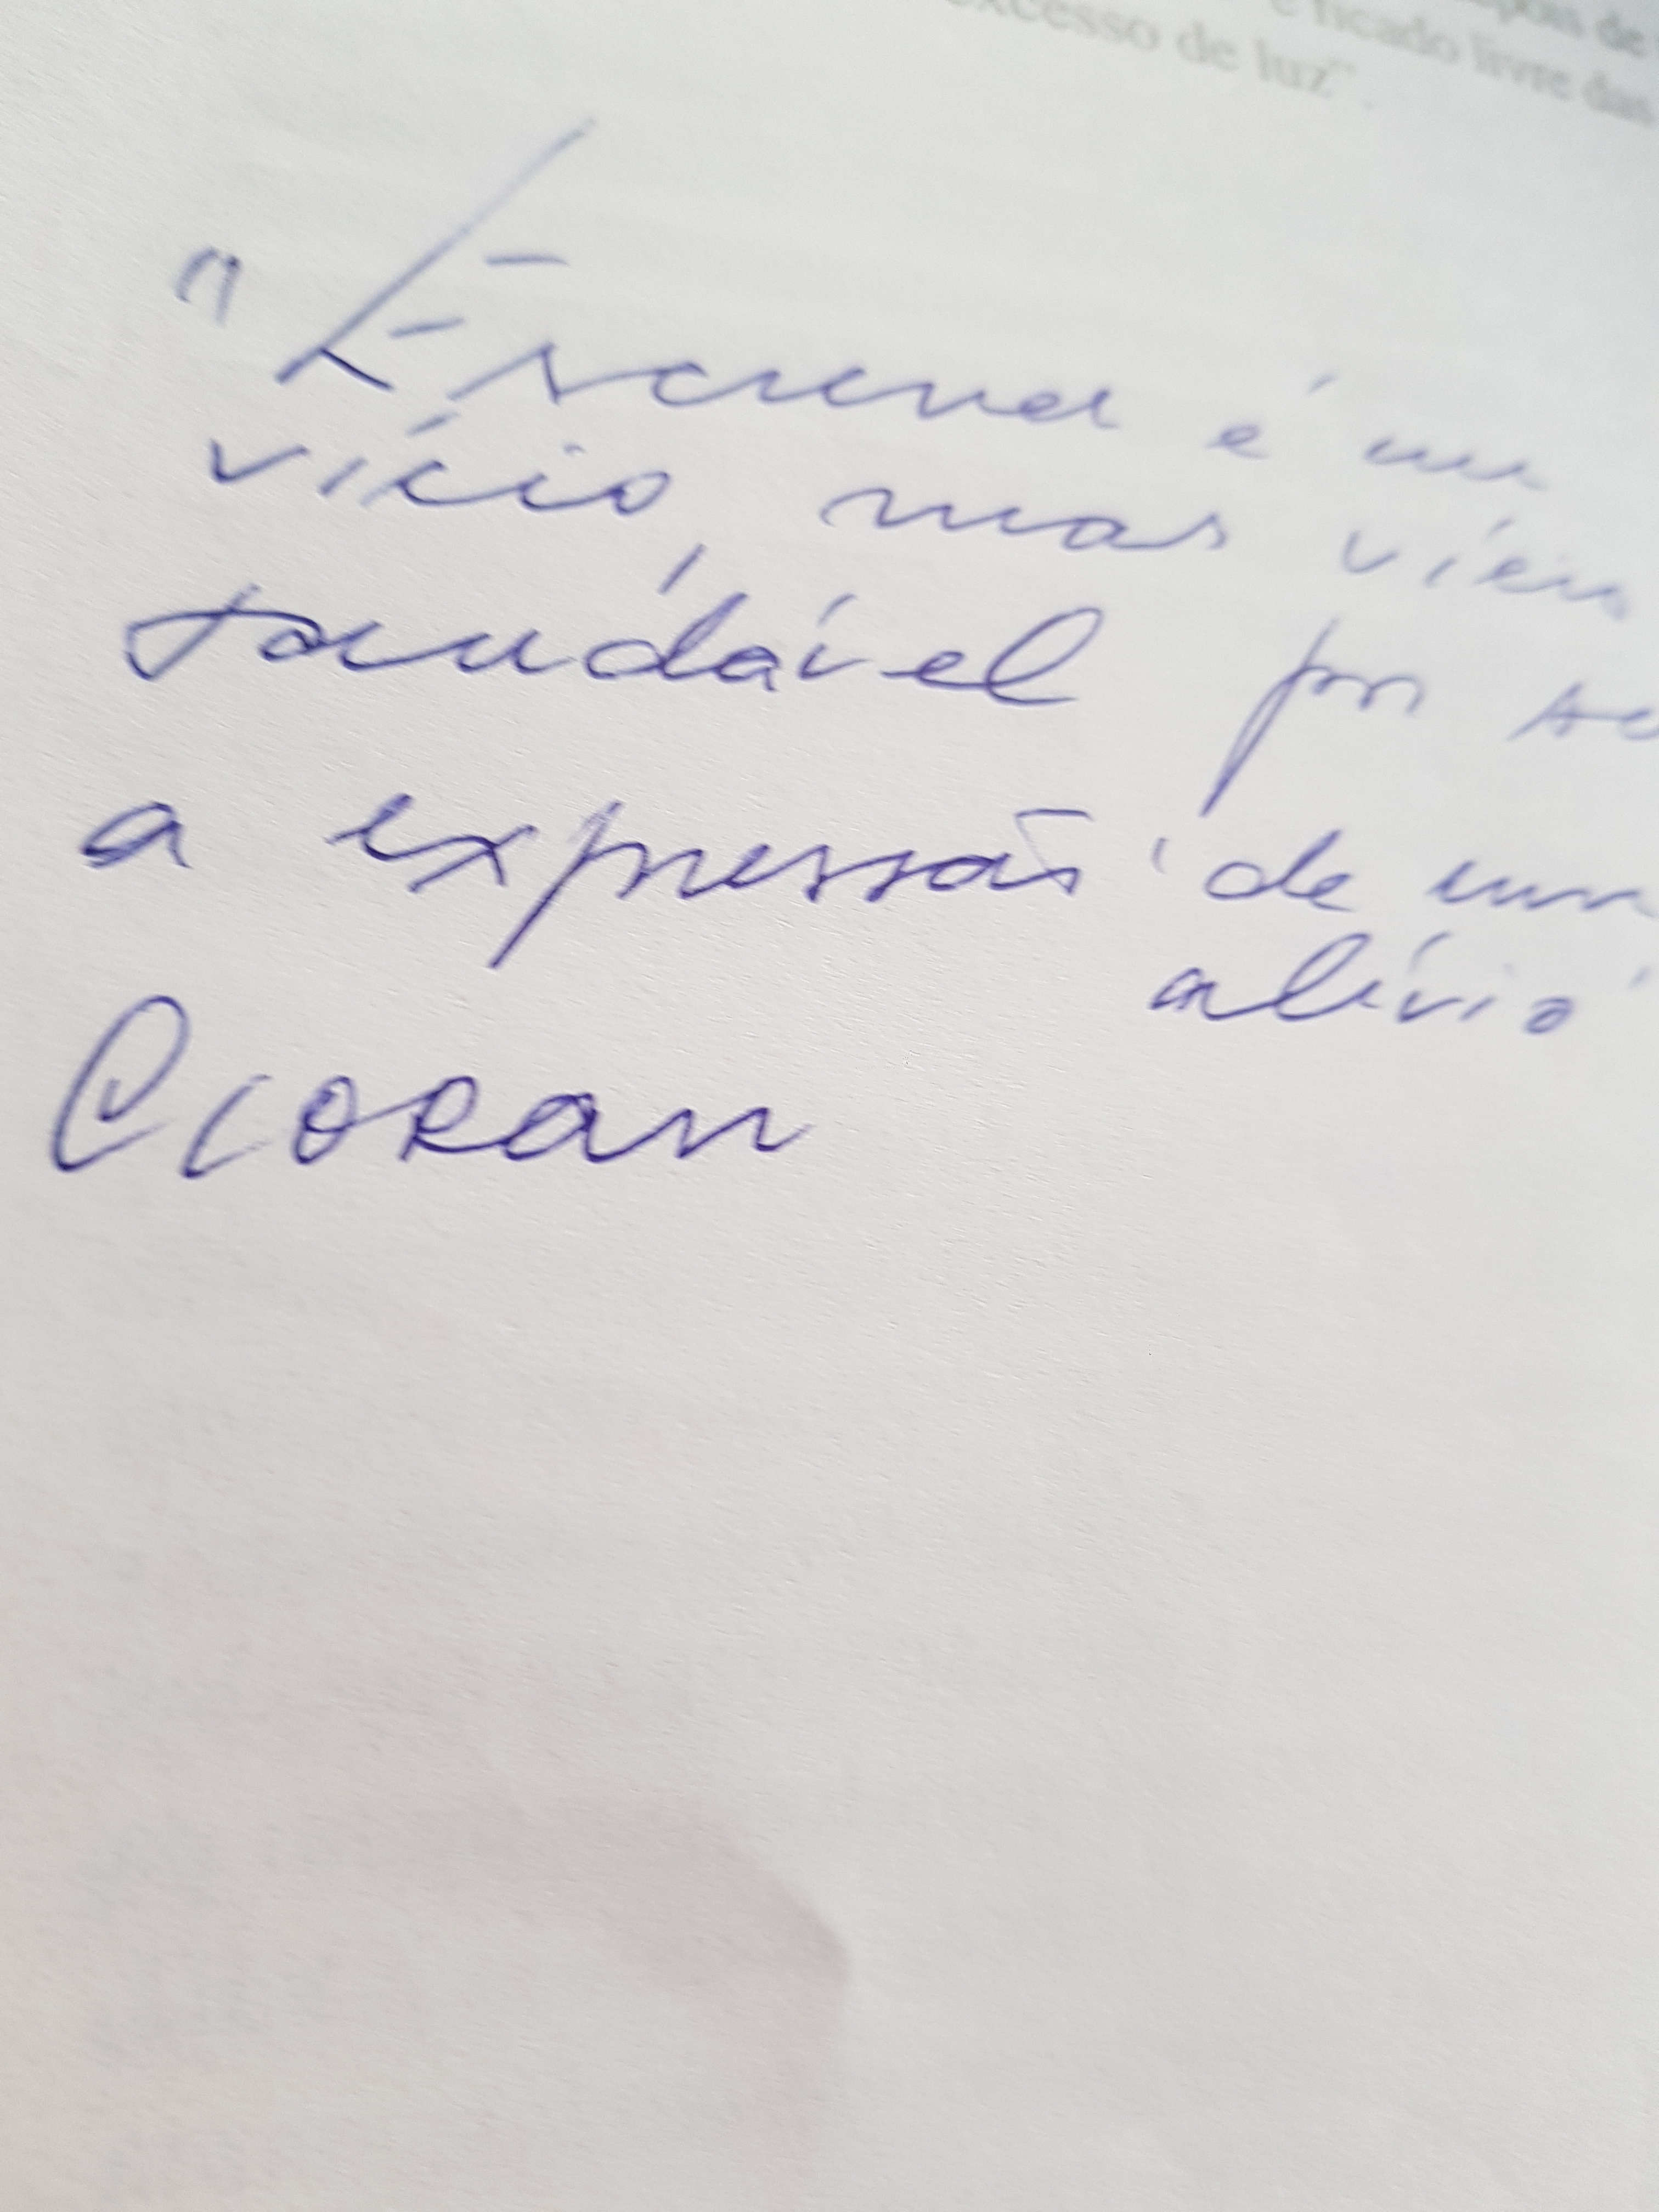 pois de
e ficado livre das
excesso de luz".
"Escrever é um
vício, mas vício
saudável por se
a expressão de um
alívio"
Cioran